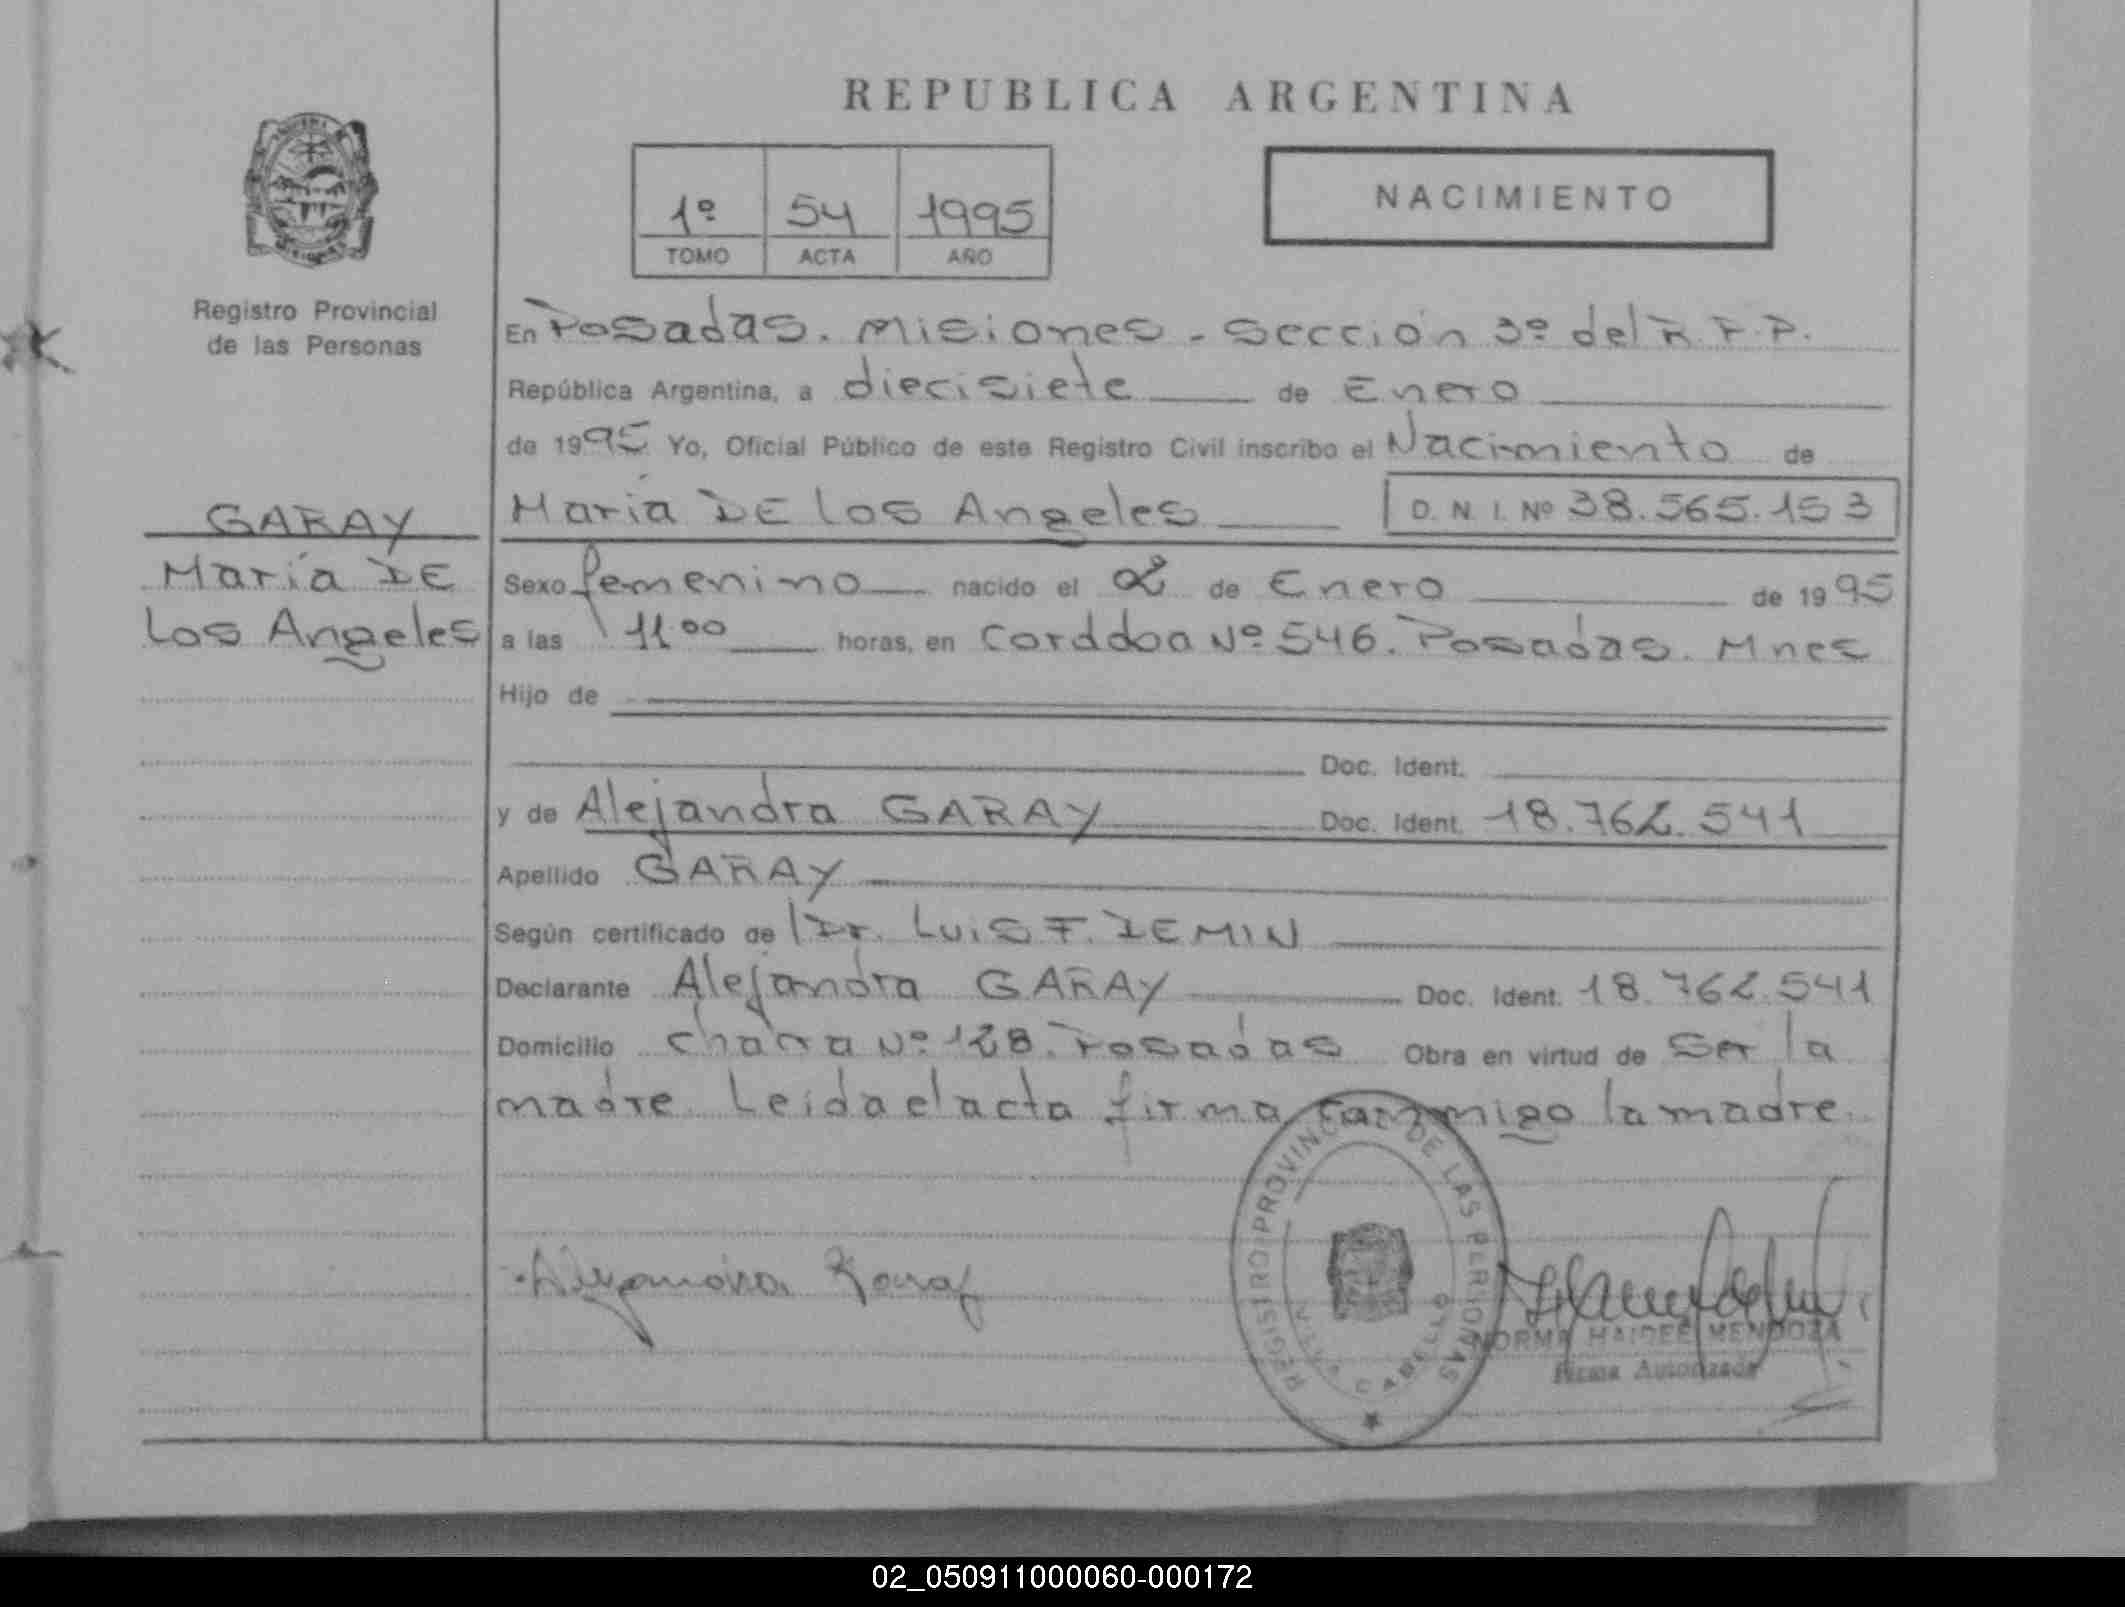 REPUBLICA ARGENTINA
1º 54 1995
TOMO ACTA AÑO
NACIMIENTO
Registro Provincial
de las Personas
GARAY
María DE
Los Angeles
En Posadas. Misiones - Sección 3º del R.P.P.
República Argentina, a diecisiete de Enero
de 1995 Yo, Oficial Público de este Registro Civil inscribo el Nacimiento de
María DE Los Angeles D. N. I. Nº 38.565.153
Sexo femenino nacido el 2 de Enero de 1995
a las 11.00 horas, en Cordoba Nº 546. Posadas. Mnes
Hijo de
Doc. Ident.
y de Alejandra GARAY Doc. Ident. 18.762.541
Apellido GARAY
Según certificado de Dr. Luis F. DEMIN
Declarante Alejandra GARAY Doc. Ident. 18.762.541
Domicilio Chacra Nº 128. Posadas Obra en virtud de Ser la
madre. Leida el acta firma conmigo la madre.
REGISTRO PROVINCIAL DE LAS PERSONAS
VILLA CABELLO
Alejandra Garay
NORMA HAIDEE MENDOZA
Firma Autorizada
02_050911000060-000172